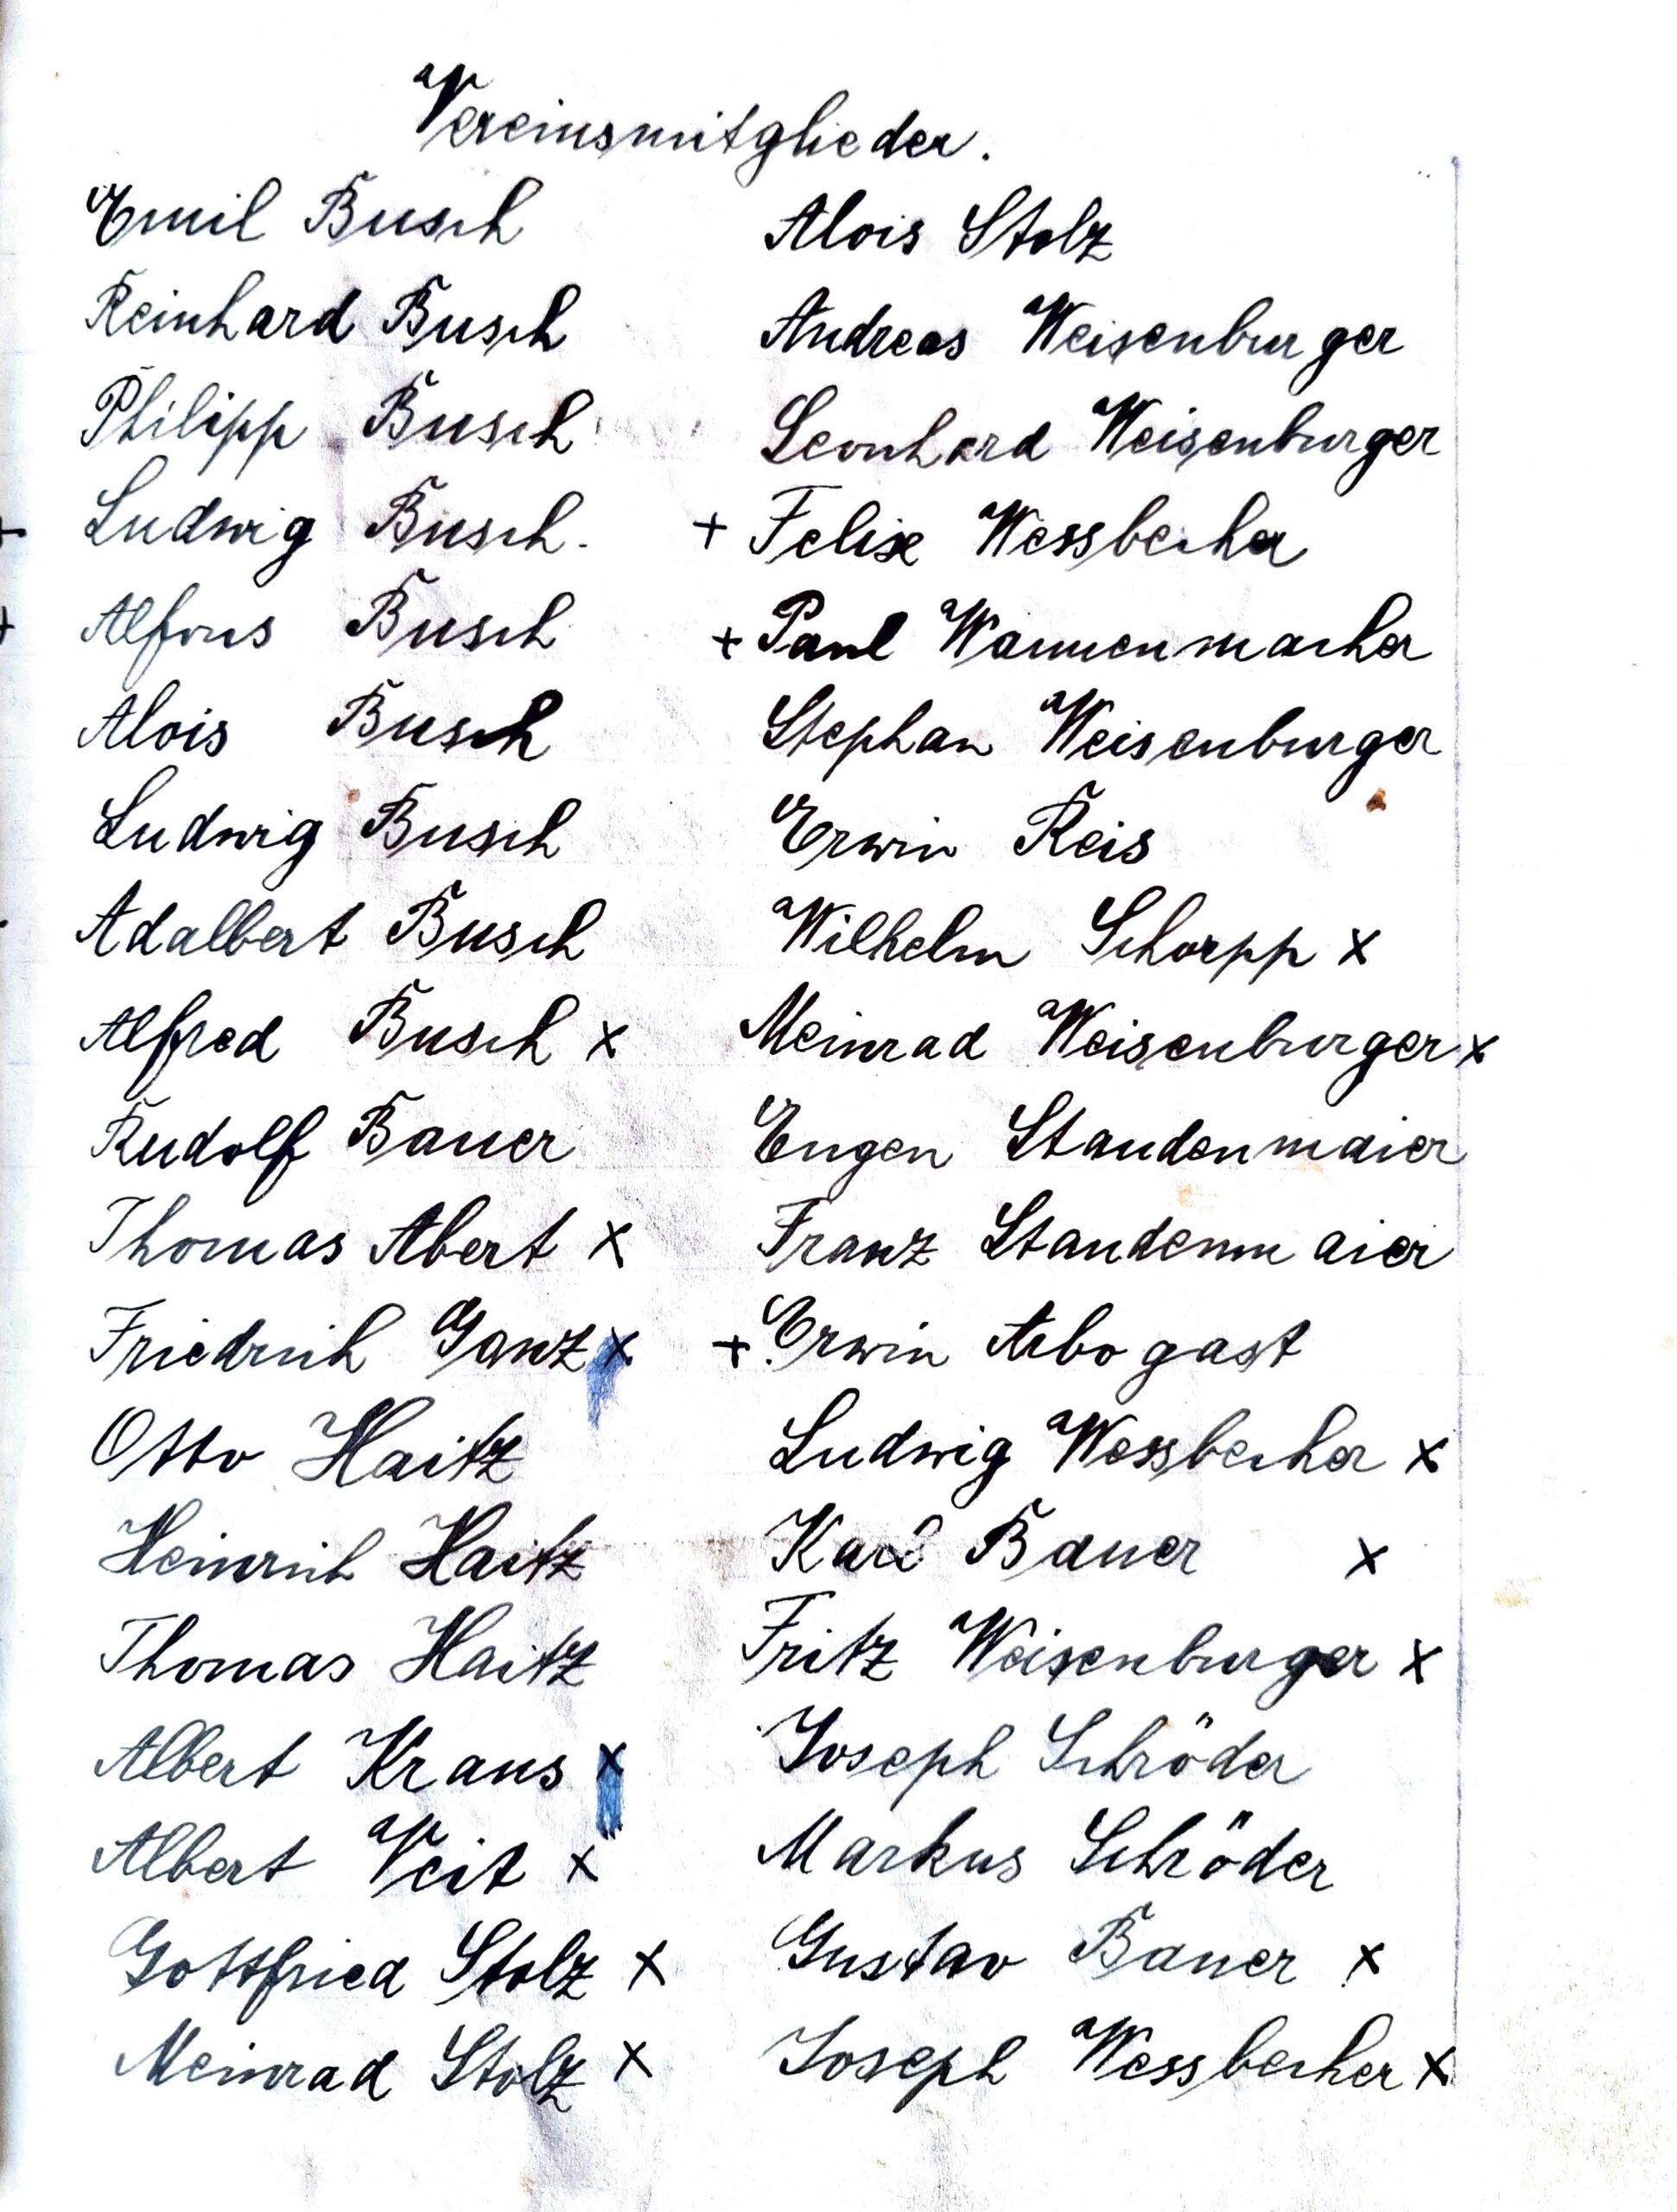 Vereinsmitglieder.
Emil Busch
Reinhard Busch
Philipp Busch
+ Ludwig Busch.
+ Alfons Busch
Alois Busch
Ludwig Busch
Adalbert Busch
Alfred Busch x
Rudolf Bauer
Thomas Abert x
Friedrich Ganz x
Otto Haitz
Heinrich Haitz
Thomas Haitz
Albert Kraus x
Albert Veit x
Gottfried Stolz x
Meinrad Stolz x
Alois Stolz
Andreas Weisenburger
Leonhard Weisenburger
+ Felix Wessbecher
+ Paul Wannenmacher
Stephan Weisenburger
Erwin Reis
Wilhelm Schorpp x
Meinrad Weisenburger x
Eugen Staudenmaier
Franz Staudenmaier
+ Erwin Arbogast
Ludwig Wessbecher x
Karl Bauer x
Fritz Weisenburger x
Joseph Schröder
Markus Schröder
Gustav Bauer x
Joseph Wessbecher x